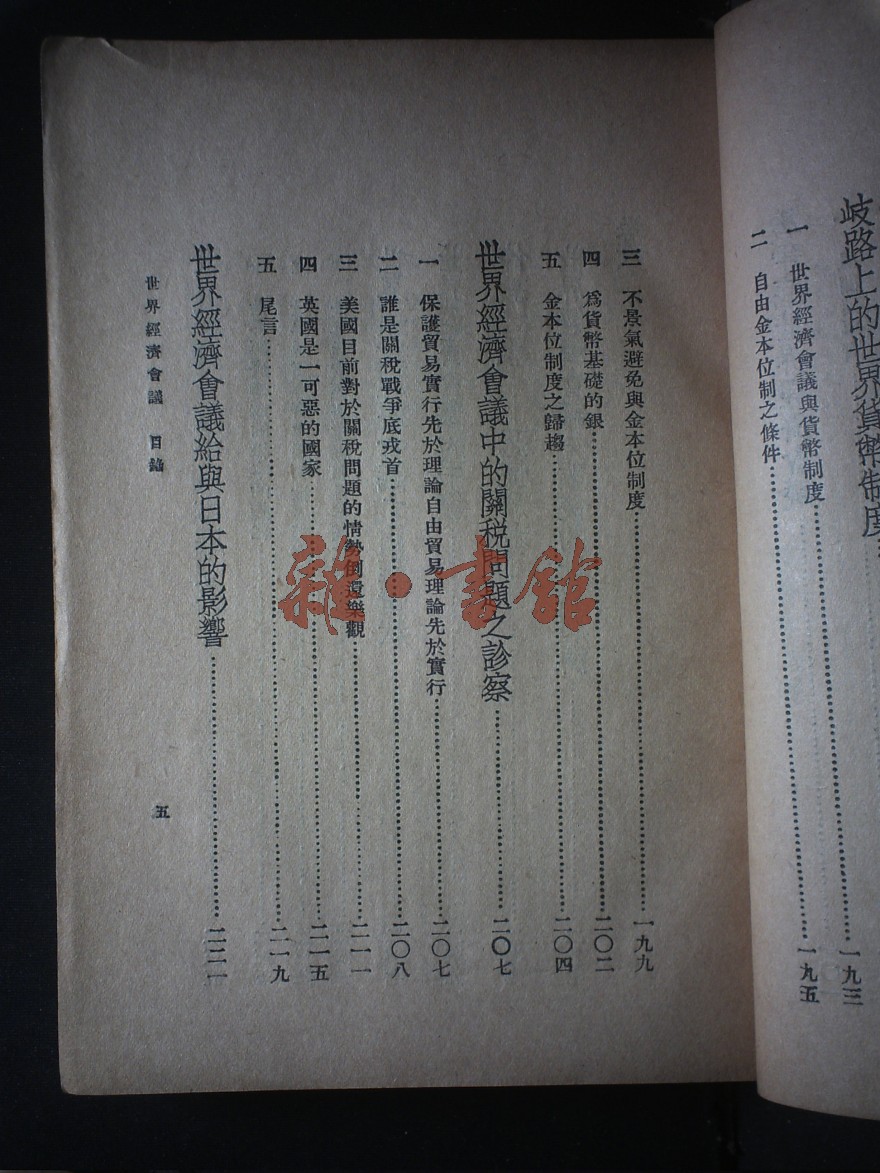 歧路上的世界貨幣制度
一 世界經濟會議與貨幣制度……一九三
二 自由金本位制之條件……一九五
三 不景氣避免與金本位制度……一九九
四 爲貨幣基礎的銀……二〇二
五 金本位制度之歸趨……二〇四
世界經濟會議中的關稅問題之診察……二〇七
一 保護貿易實行先於理論自由貿易理論先於實行……二〇七
二 誰是關稅戰爭底戎首……二〇八
三 美國目前對於關稅問題的情勢倒遺樂觀……二一一
四 英國是一可惡的國家……二一五
五 尾言……二一九
世界經濟會議給與日本的影響……二二一
世界經濟會議 目錄
五
雜·書館